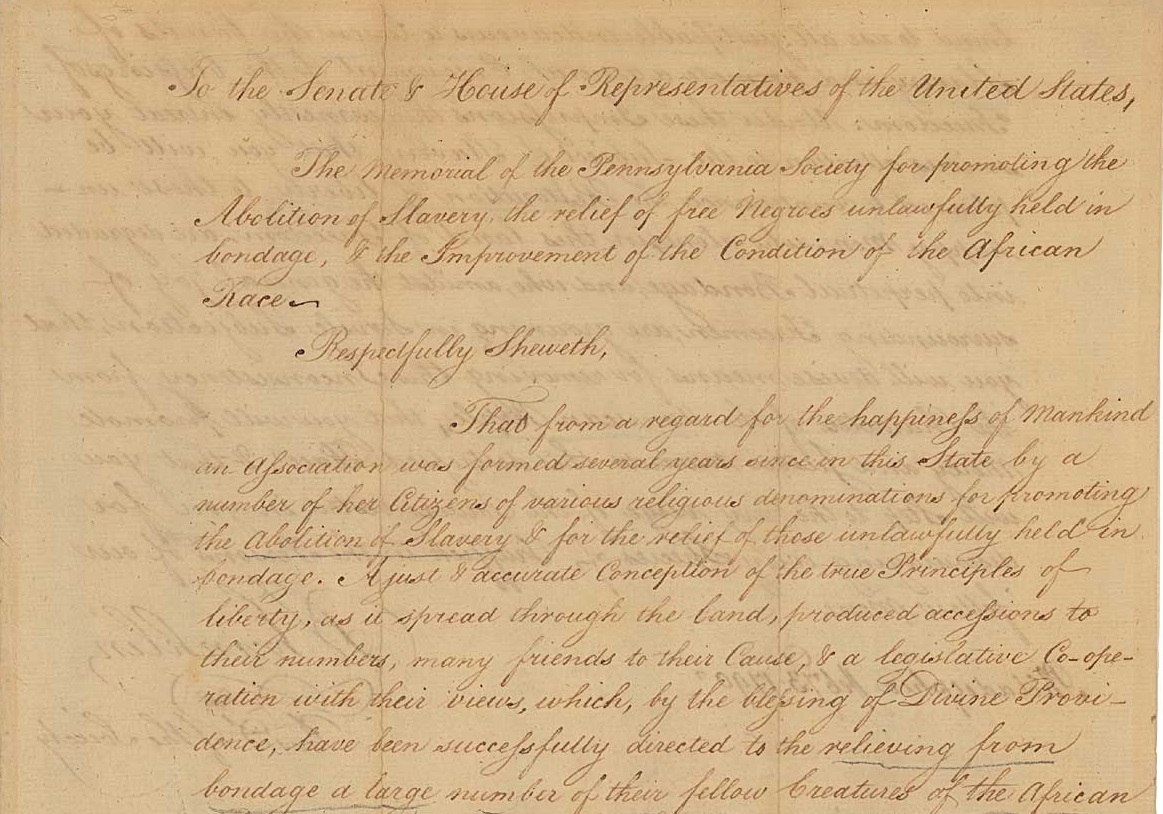 To the Senate & House of Representatives of the United States,
The Memorial of the Pennsylvania Society for promoting the
Abolition of Slavery, the relief of free Negroes unlawfully held in
bondage, & the Improvement of the Condition of the African
Race
Respectfully Sheweth,
That from a regard for the happineſs of Mankind
an Aſsociation was formed several years since in this State by a
number of her Citizens of various religious denominations for promoting
the Abolition of Slavery & for the relief of those unlawfully held in
bondage. A just & accurate Conception of the true Principles of
liberty, as it spread through the land, produced acceſsions to
their numbers, many friends to their Cause, & a legislative Co-ope-
ration with their views, which, by the bleſsing of Divine Provi-
dence, have been succeſsfully directed to the relieving from
bondage a large number of their fellow Creatures of the African